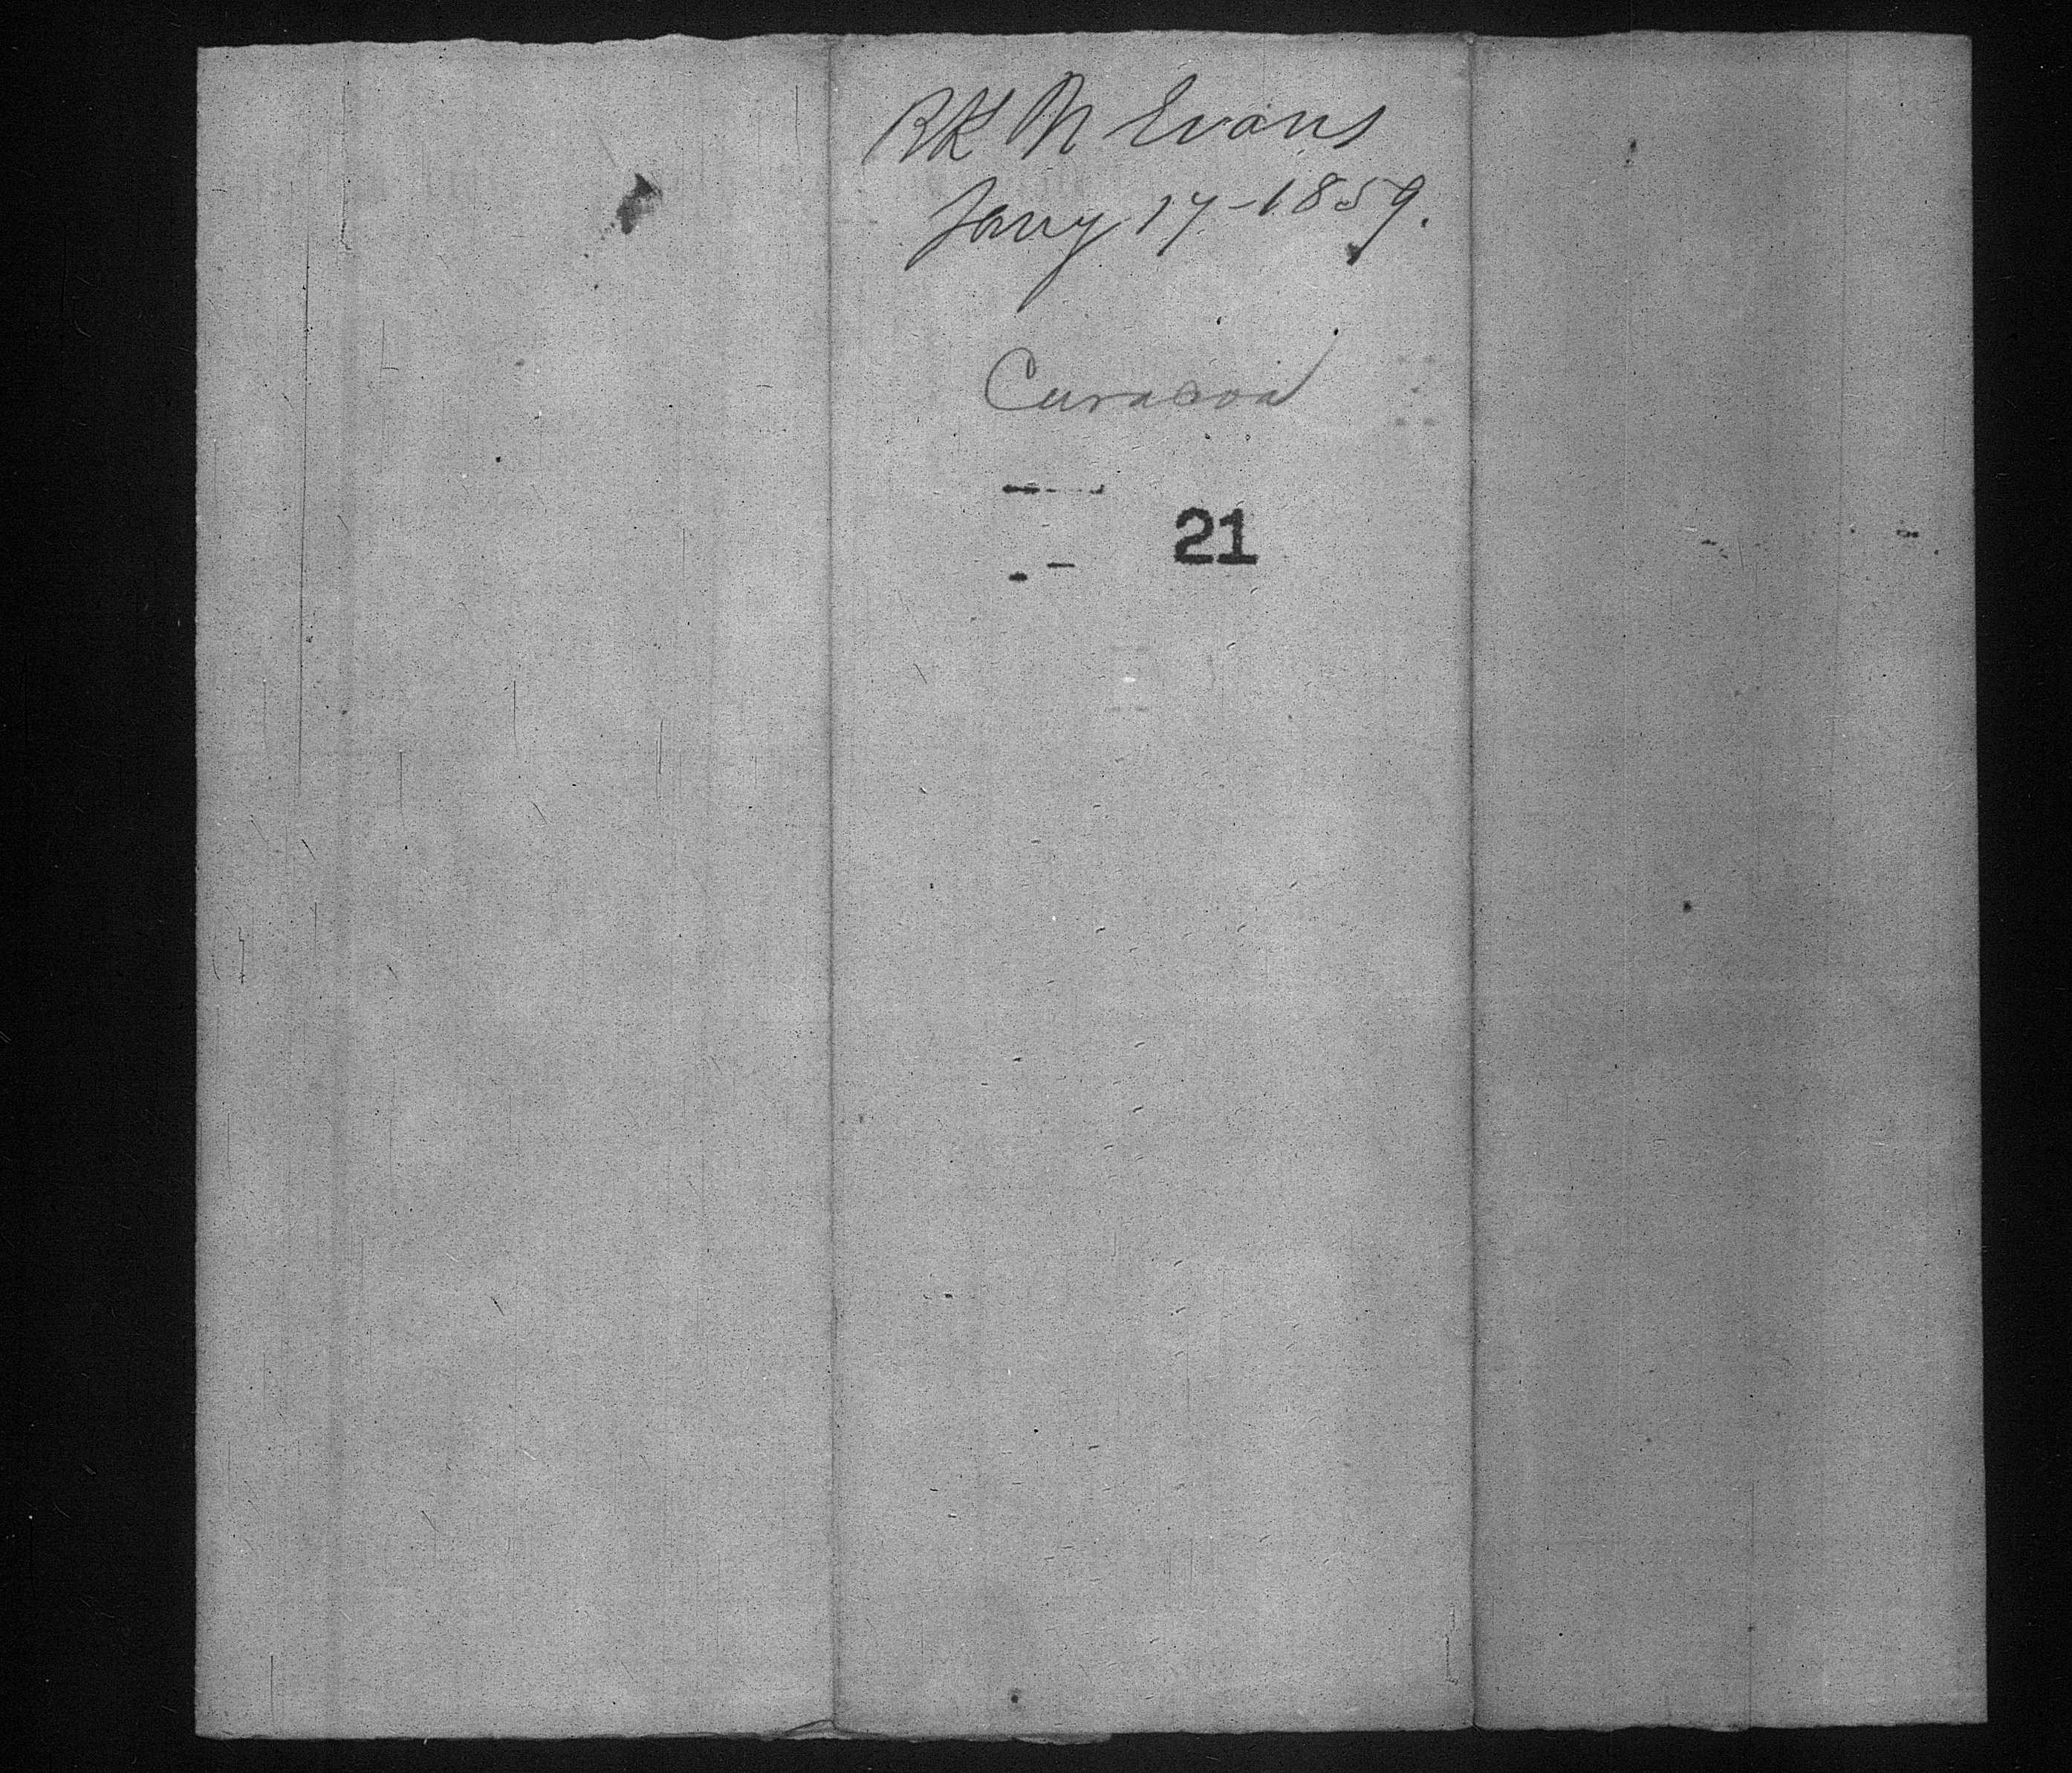 BK M Evans
Jany 17-1859.
Curacoa
21